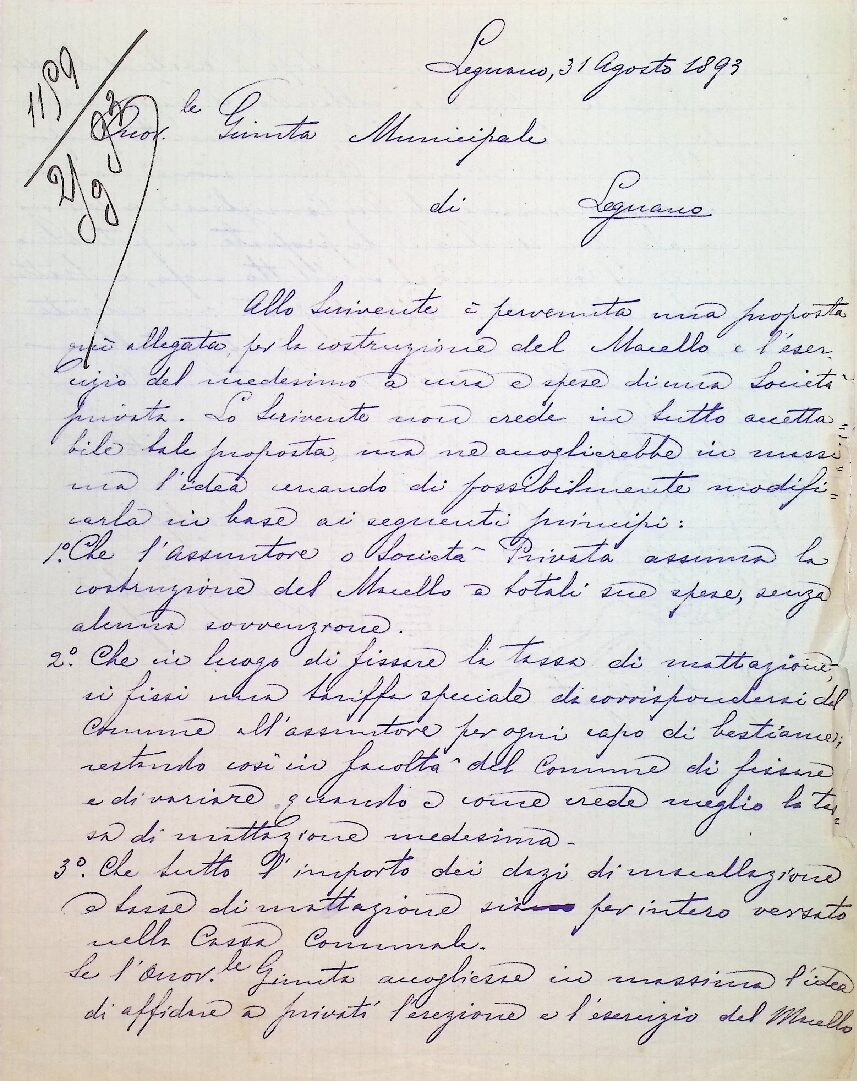 Legnano, 31 Agosto 1893
1159
2/9 93
Onor.le Giunta Municipale
di Legnano
Allo Scrivente è pervenuta una proposta
quì allegata, per la costruzione del Macello e l'eser-
cizio del medesimo a cura e spese di una Società
privata. Lo Scrivente non crede in tutto accetta=
bile tale proposta, ma ne accoglierebbe in massi=
ma l'idea cercando di possibilmente modifi=
carla in base ai seguenti principi:
1.° Che l'assuntore o Società Privata assuma la
costruzione del Macello a totali sue spese, senza
alcuna sovvenzione.
2.° Che in luogo di fissare la tassa di mattazione,
si fissi una tariffa speciale da corrispondersi dal
Comune all'assuntore per ogni capo di bestiame;
restando così in facoltà del Comune di fissare
e di variare quando e come crede meglio la tas=
sa di mattazione medesima.
3.° Che tutto l'importo dei dazi di macellazione
e tasse di mattazione sia per intero versato
nella Cassa Comunale.
Se l'Onor.le Giunta accogliesse in massima l'idea
di affidare a privati l'erezione e l'esercizio del Macello